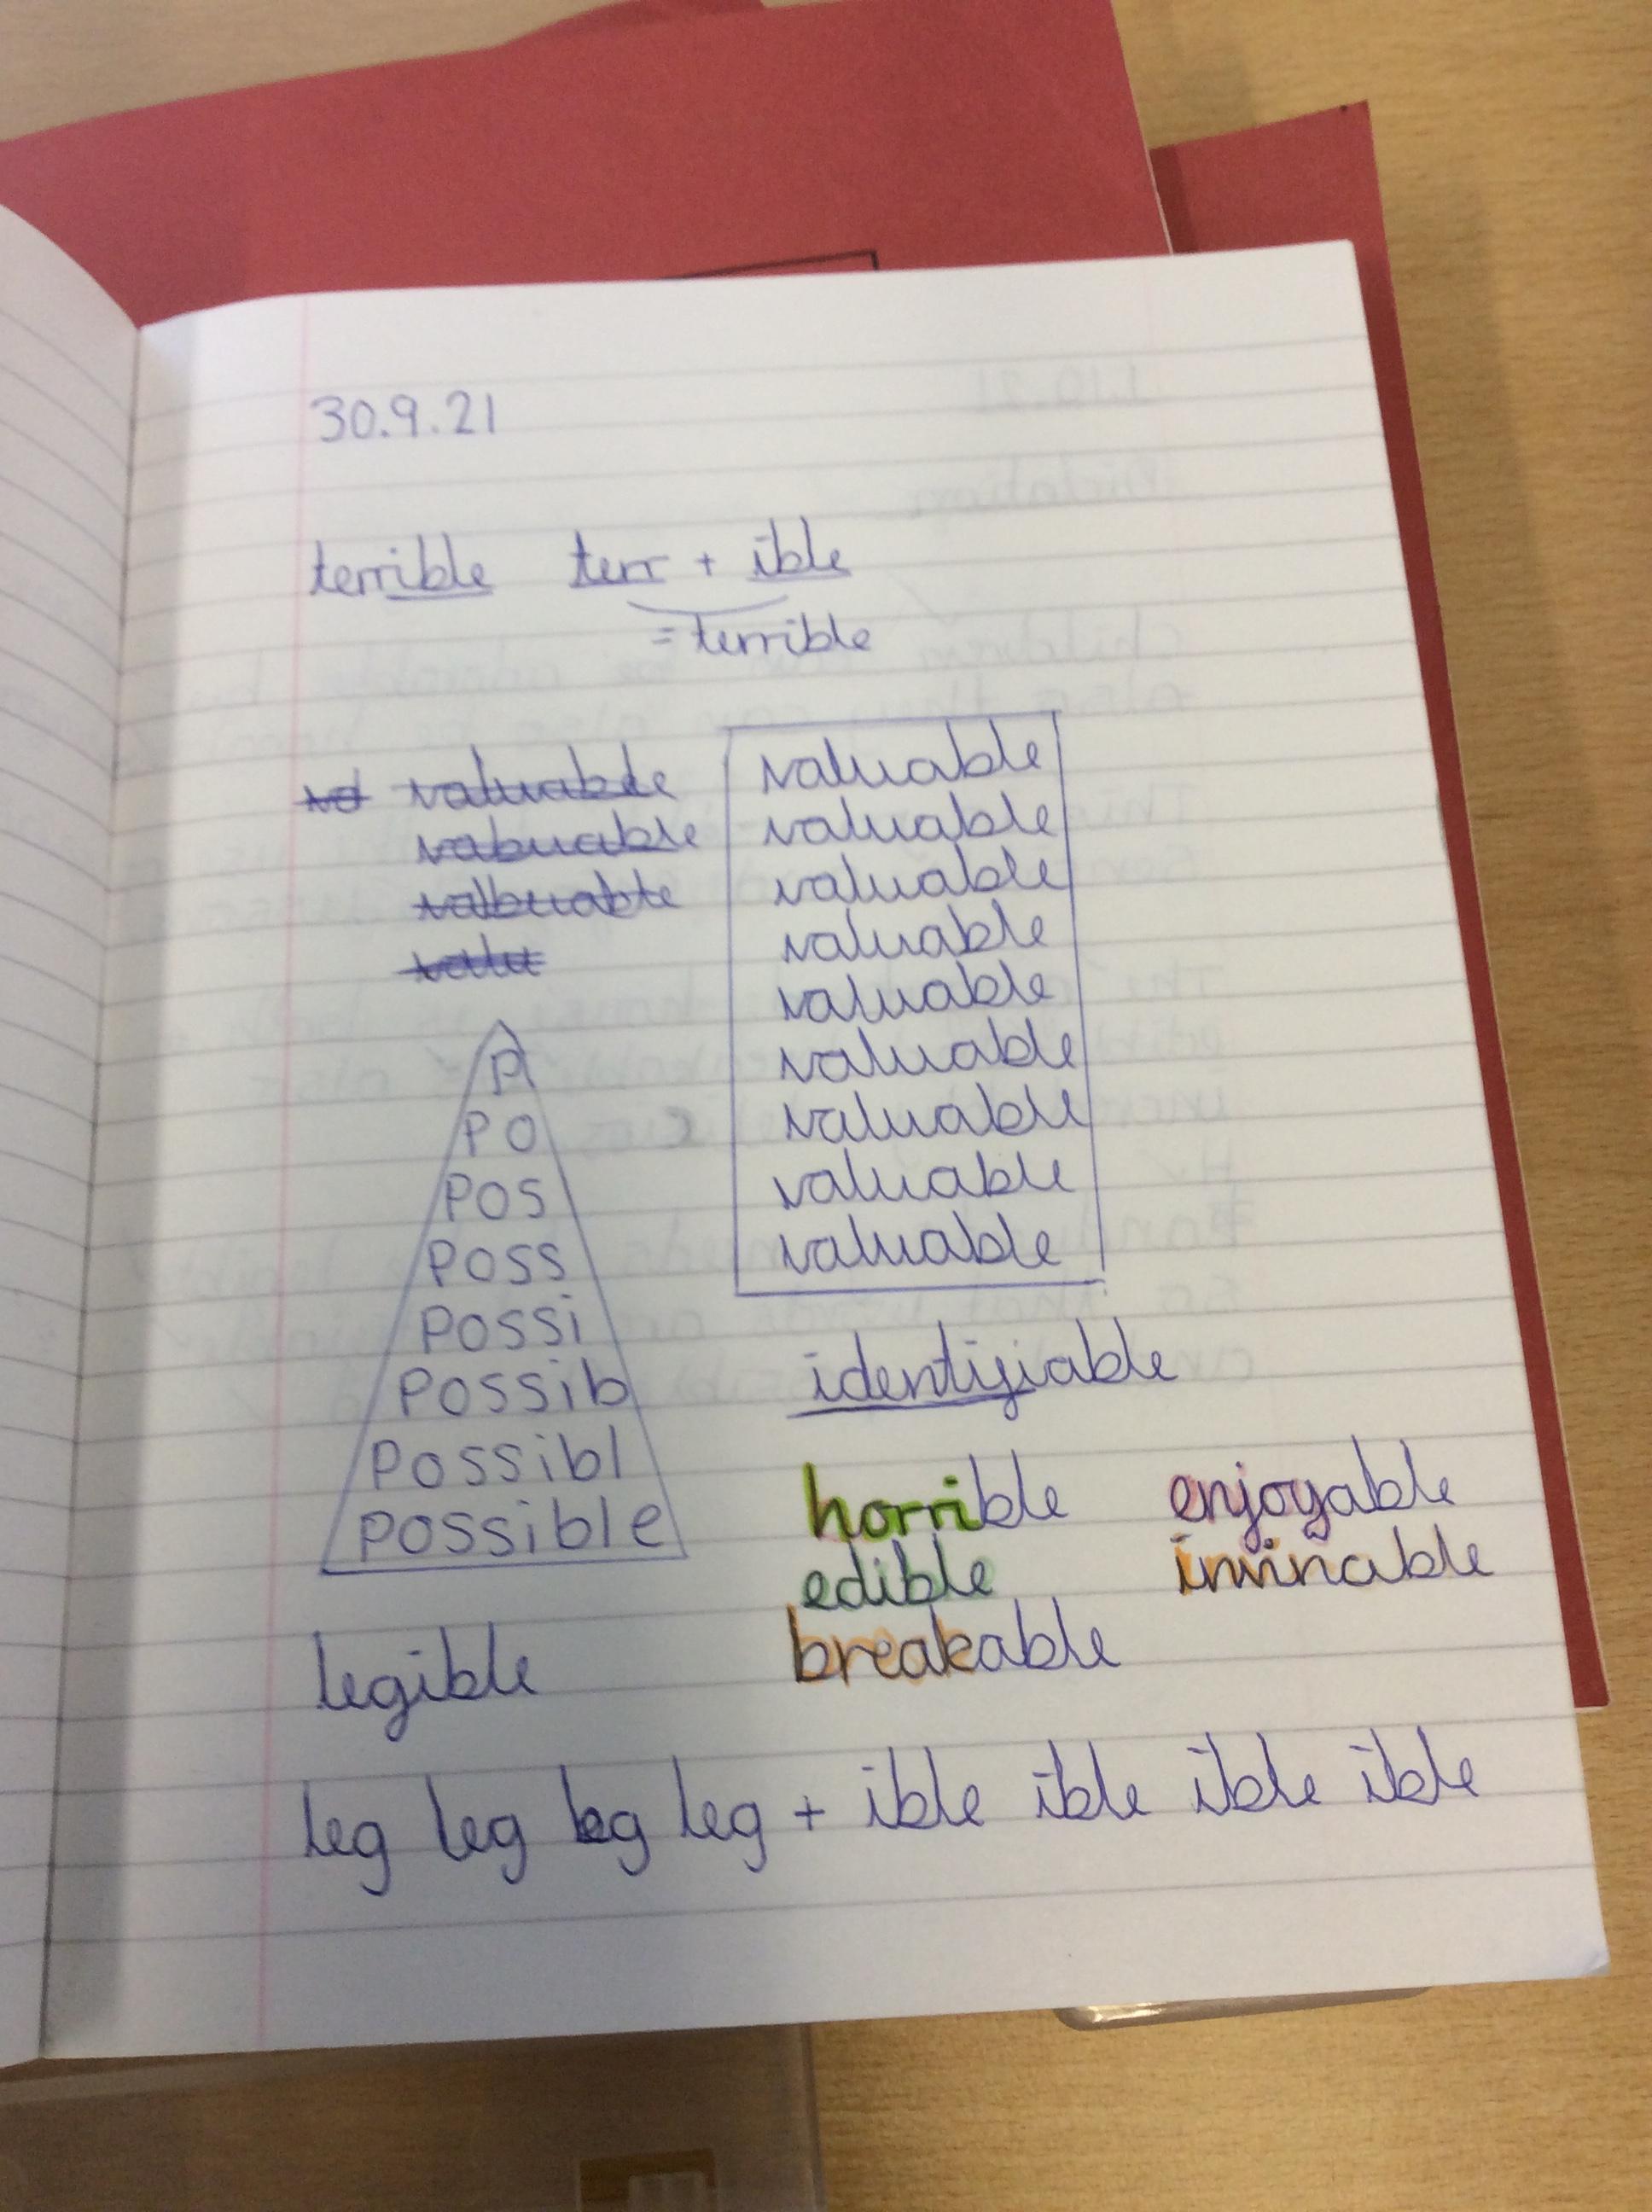 30.9.21
terrible terr + ible
= terrible
va valuable
vabuable
valbuable
valu
valuable
valuable
valuable
valuable
valuable
valuable
valuable
valuable
valuable
P
PO
POS
POSS
POSSi
POSSib
POSSibl
POSSible
identifiable
horrible enjoyable
edible invincable
breakable
legible
leg leg leg leg + ible ible ible ible